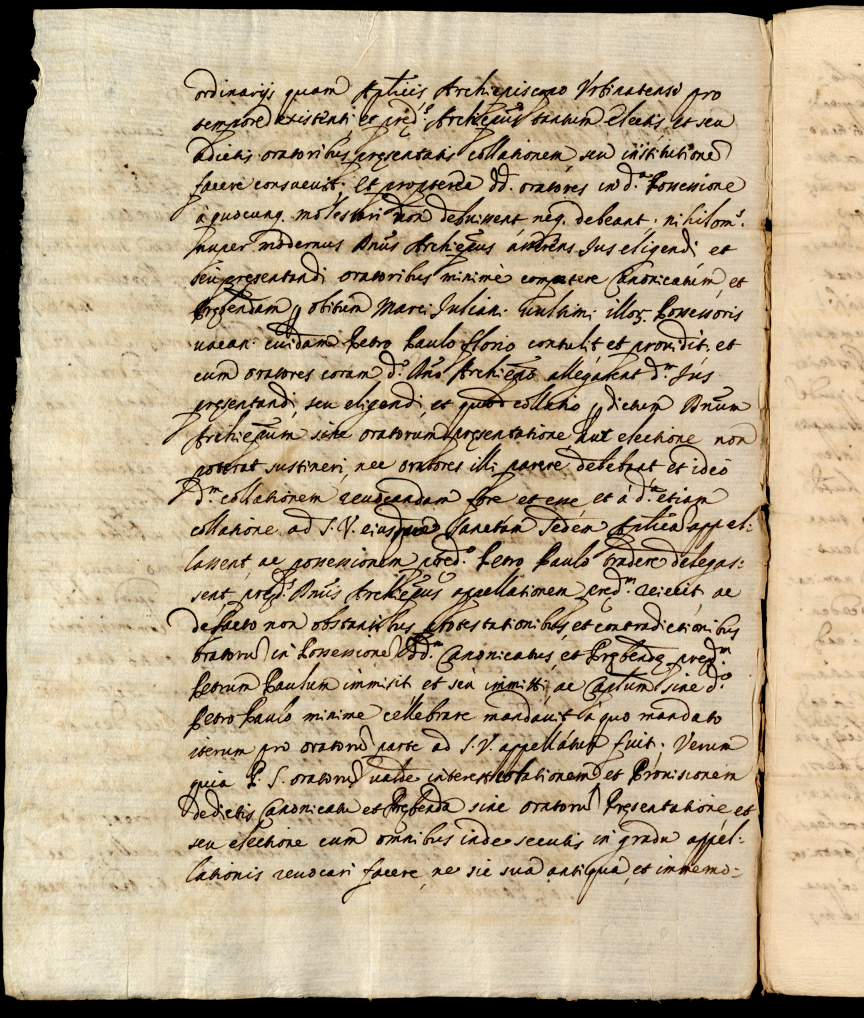 ordinarijs quam Aplicis Archiepiscopo Urbinatensi pro
tempore existenti et pred.º Archiepũs tantum electis, et seu
à dictis oratoribus presentatis collationem seu institutione
facere consuevit; Et propterea dd. oratores in d.ª Possessione
à quocunq. molestari non debuissent neq. debeant; nihilom.s
nuper modernus Dnũs Archiepũs asserens Jus eligendi et
seu presentandi oratoribus minimè competere Canonicatum et
Prebendam p obitum Marci Juliani ultimi illoȝ Possessoris
vacan. cuidam Petro Paulo Florio contulit et providit, et
cum oratores coram d.º Dnõ Archiepõ allegarent d.m Jus
presentandi, seu eligendi, et quod collatio p dictum Dnũm
Archiepũm sine oratorum presentatione aut electione non
poterat sustineri, nec oratores illi parere debebant et ideo
d.m collationem revocandam fore et esse et à d.ª etiam
collatione ad S.V. eiusque Sanctam Sedem Aplicã appel:
lassent, ac possessionem pred.º Petro Paulo tradere denegas:
sent, pred.s Dnũs Archiepũs appellationem pred.m reiecit ac
de facto non obstantibus protestationibus et contradictionibus
oratorũ in Possessione dd.m Canonicatus, et Prebende pred.m
Petrum Paulum immisit et seu immitti, ac Captum sine d.º
Petro Paulo minime cellebrare mandavit à quo mandato
iterum pro oratorũ parte ad S.V. appellatum fuit; Verum
quia P. S. oratorũ valde interest collationem et Provisionem
de dictis Canonicatu et Prebenda sine oratorũ Presentatione et
seu electione cum omnibus inde secutis in gradu appel:
lationis revocari facere, ne sic sua antiqua, et immemo: